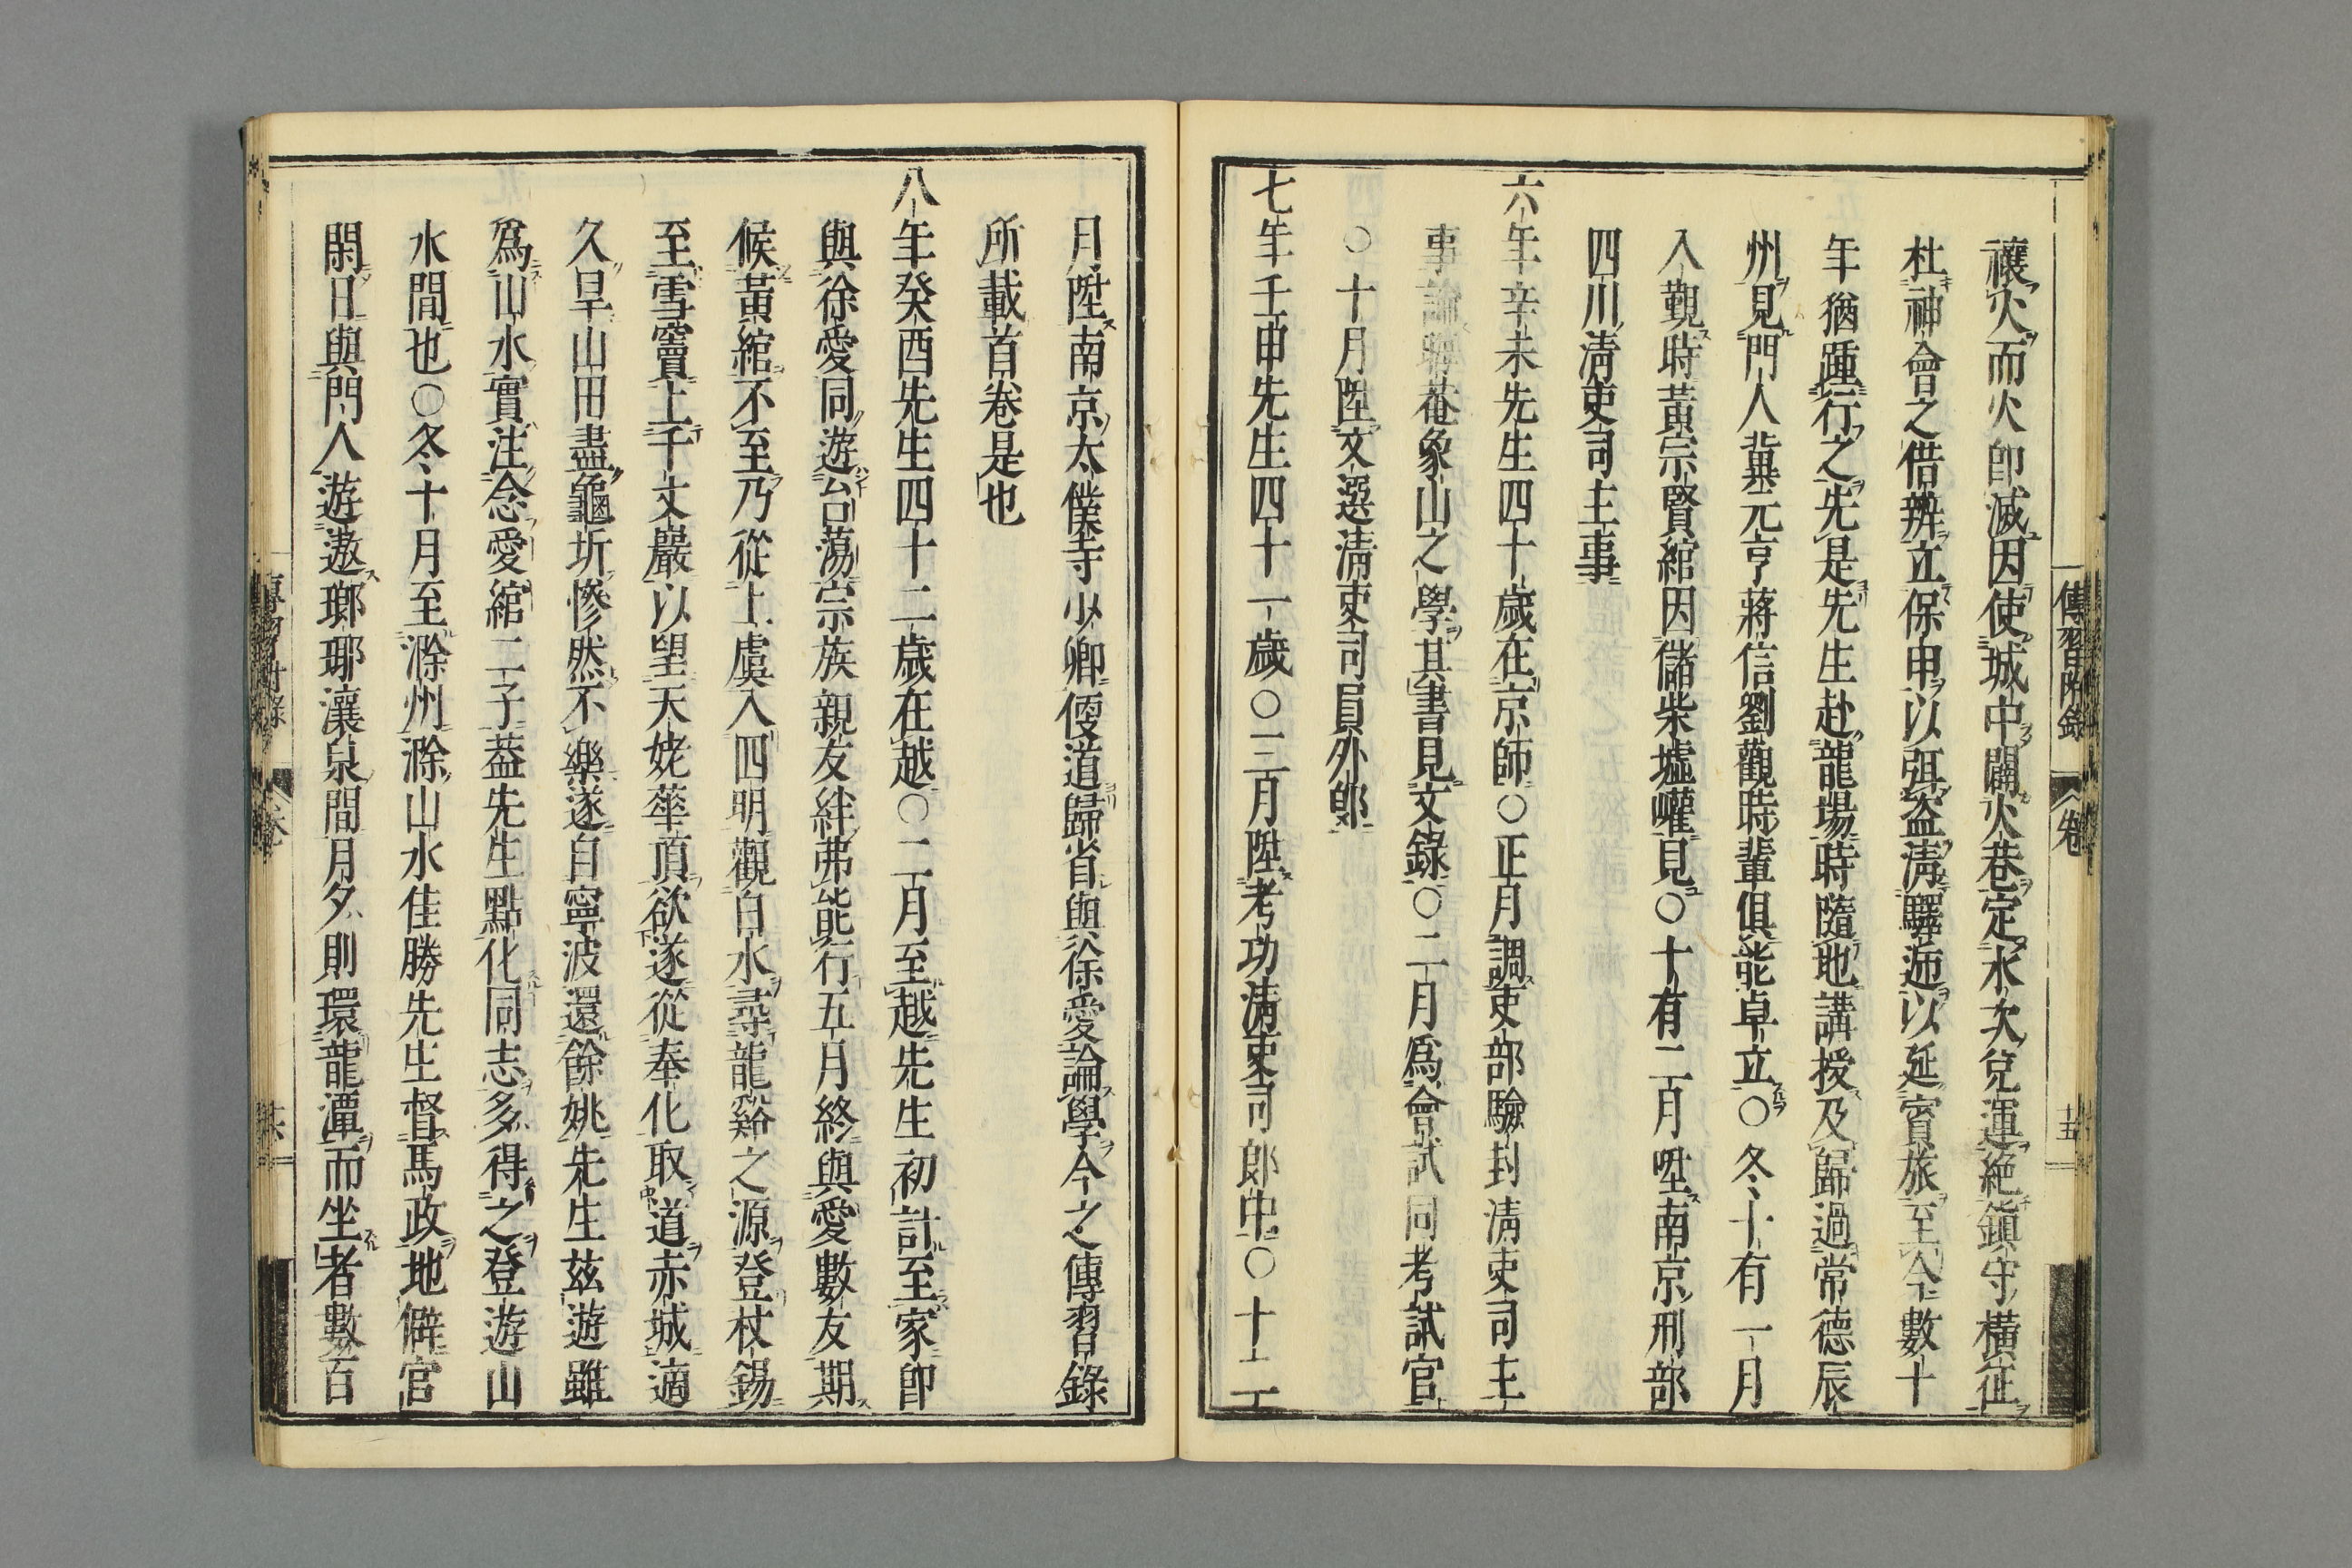 傳習附錄 卷 十五
禳火而火卽滅因使城中闢火巷定水次兌運絶鎮守橫征
杜神會之借辨立保甲以弭盗淸驛逓以延賓旅至今數十
年猶踵行之先是先生赴龍場時隨地講授及歸過常德辰
州見門人冀元亨蔣信劉觀時輩俱能卓立○冬十有一月
入覲時黃宗賢綰因儲柴墟巏見○十有二月陞南京刑部
四川淸吏司主事
六年辛未先生四十歲在京師○正月調吏部驗封淸吏司主
事論晦菴象山之學其書見文錄○二月爲會試同考試官
○十月陞文選淸吏司員外郞
七年壬申先生四十一歲○三月陞考功淸吏司郞中○十二
月陞南京太僕寺少卿便道歸省與徐愛論學今之傳習錄
所載首卷是也
八年癸酉先生四十二歲在越○二月至越先生初計至家卽
與徐愛同遊台蕩宗族親友絆弗能行五月終與愛數友期
候黃綰不至乃從上虞入四明觀白水尋龍谿之源登杖錫
至雪竇上千丈巖以望天姥華頂欲遂從奉化取道赤城適
久旱山田盡龜坼慘然不樂遂自寧波還餘姚先生玆遊雖
爲山水實注念愛綰二子葢先生點化同志多得之登遊山
水間也○冬十月至滁州滁山水佳勝先生督馬政地僻官
閑日與門人遊遨瑯琊瀼泉間月夕則環龍潭而坐者數百